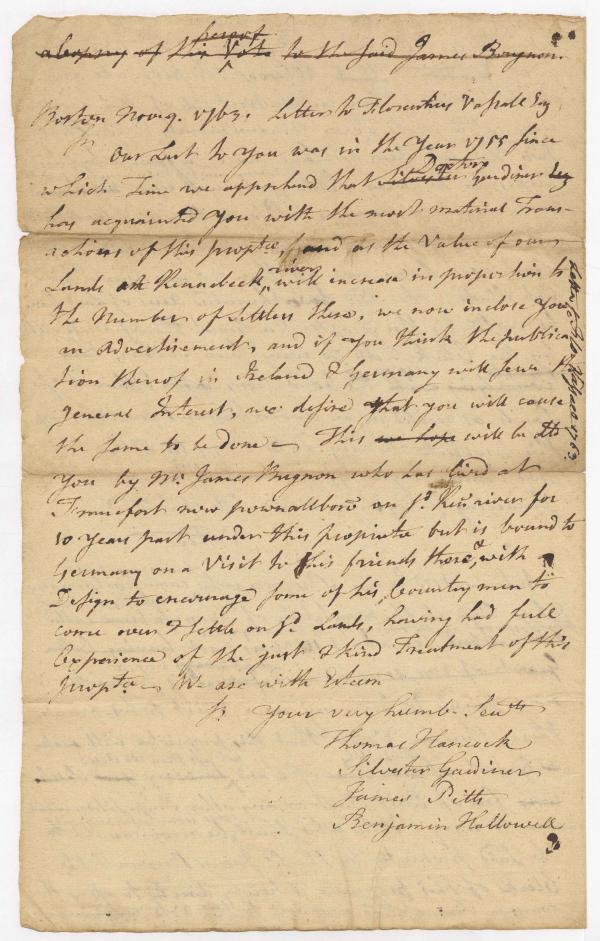 hereof
a Coppy of this Vote to the said James Bugnon.
Boston Nov. 9. 1763. Letter to Florentius Vassall Esq
Sr
Our Last to You was in the Year 1755 since
which Time we apprehend that Silvester Doctor Gardiner Esq
has acquainted You with the most material Trans-
actions of this propte, and as the Value of our
Lands at Kennebeck river, will increase in proportion to
the Number of Settlers there, we now inclose You
an Advertisement, and if you think the publica-
tion thereof in Ireland & Germany will serve the
general Interest, we desire that you will cause
the same to be done — This we hope will be
You by Mr. James Bugnon who has lived at
Francfort now pownallboro on sd. Kenn river for
10 Years past under this propriete but is bound to
Germany on a Visit to his friends there, & with a
Design to encourage some of his Country men to
come over & settle on sd. Lands, having had full
Experience of the just & kind Treatment of this
propte — We are with Esteem
Sr. Your very humb. Servts
Thomas Hancock
Silvester Gardiner
James Pitts
Benjamin Hallowell
Letter to Flo. Vassall 1763